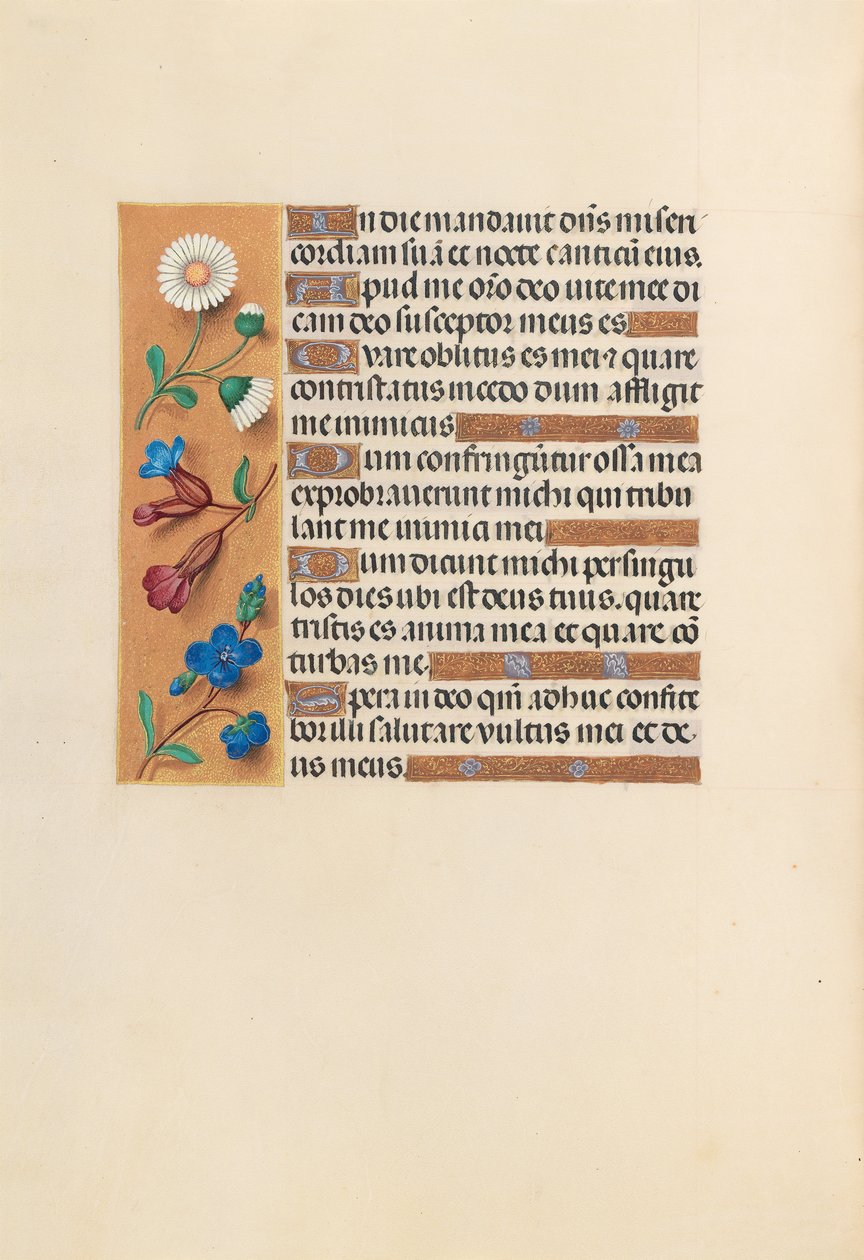 In die mandavit dñs miseri
cordiam suā et nocte canticū eius.
Apud me oro deo uite mee di
cam deo susceptor meus es
Quare oblitus es mei ⁊ quare
contristatus incedo dum affligit
me inimicus
Dum confringūtur ossa mea
exprobrauerunt michi qui tribu
lant me inimici mei
Dum dicunt michi per singu
los dies ubi est deus tuus. quare
tristis es anima mea et quare cō
turbas me.
Spera in deo qm̄ adhuc confite
bor illi salutare vultus mei et de
us meus.